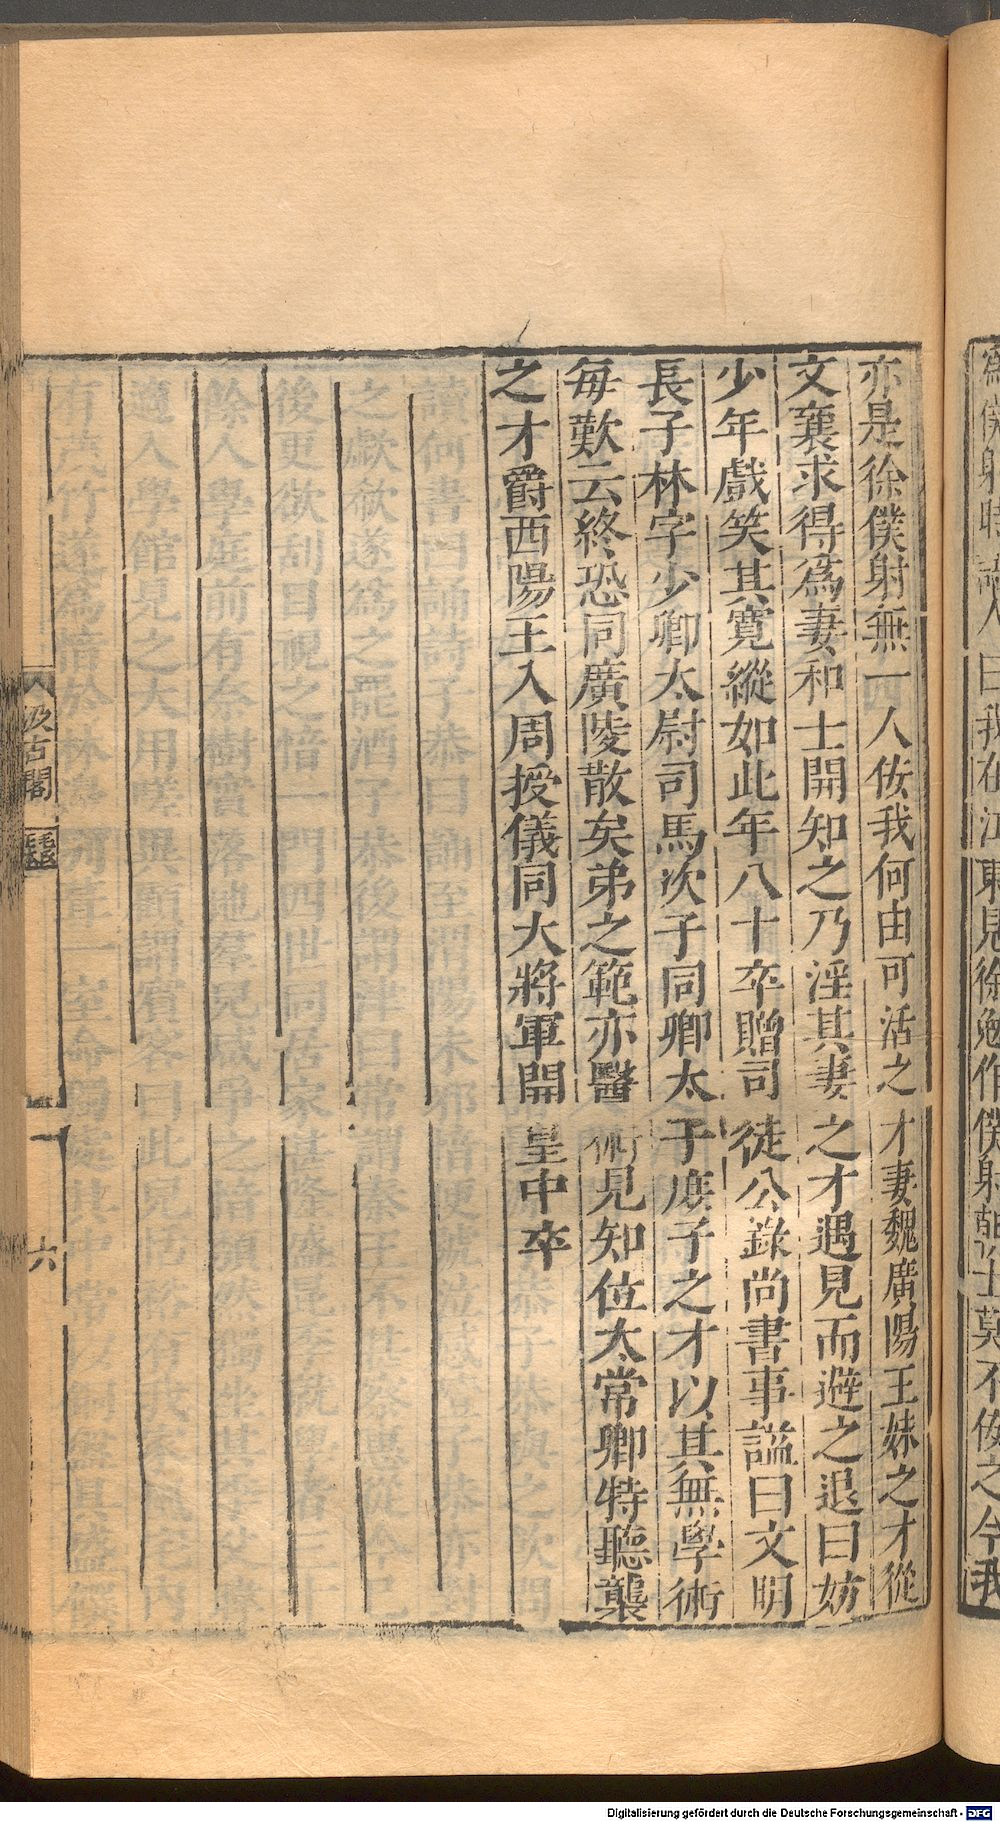 亦是徐僕射無一人佞我何由可活之才妻魏廣陽王妹之才從
文襄求得爲妻和士開知之乃淫其妻之才遇見而避之退曰妨
少年戲笑其寬縱如此年八十卒贈司徒公錄尚書事謚曰文明
長子林字少卿太尉司馬次子同卿太子庶子之才以其無學術
每歎云終恐同廣陵散矣弟之範亦醫術見知位太常卿特聽襲
之才爵西陽王入周授儀同大將軍開皇中卒
汲古閣
毛氏
六
Digitalisierung gefördert durch die Deutsche Forschungsgemeinschaft - DFG